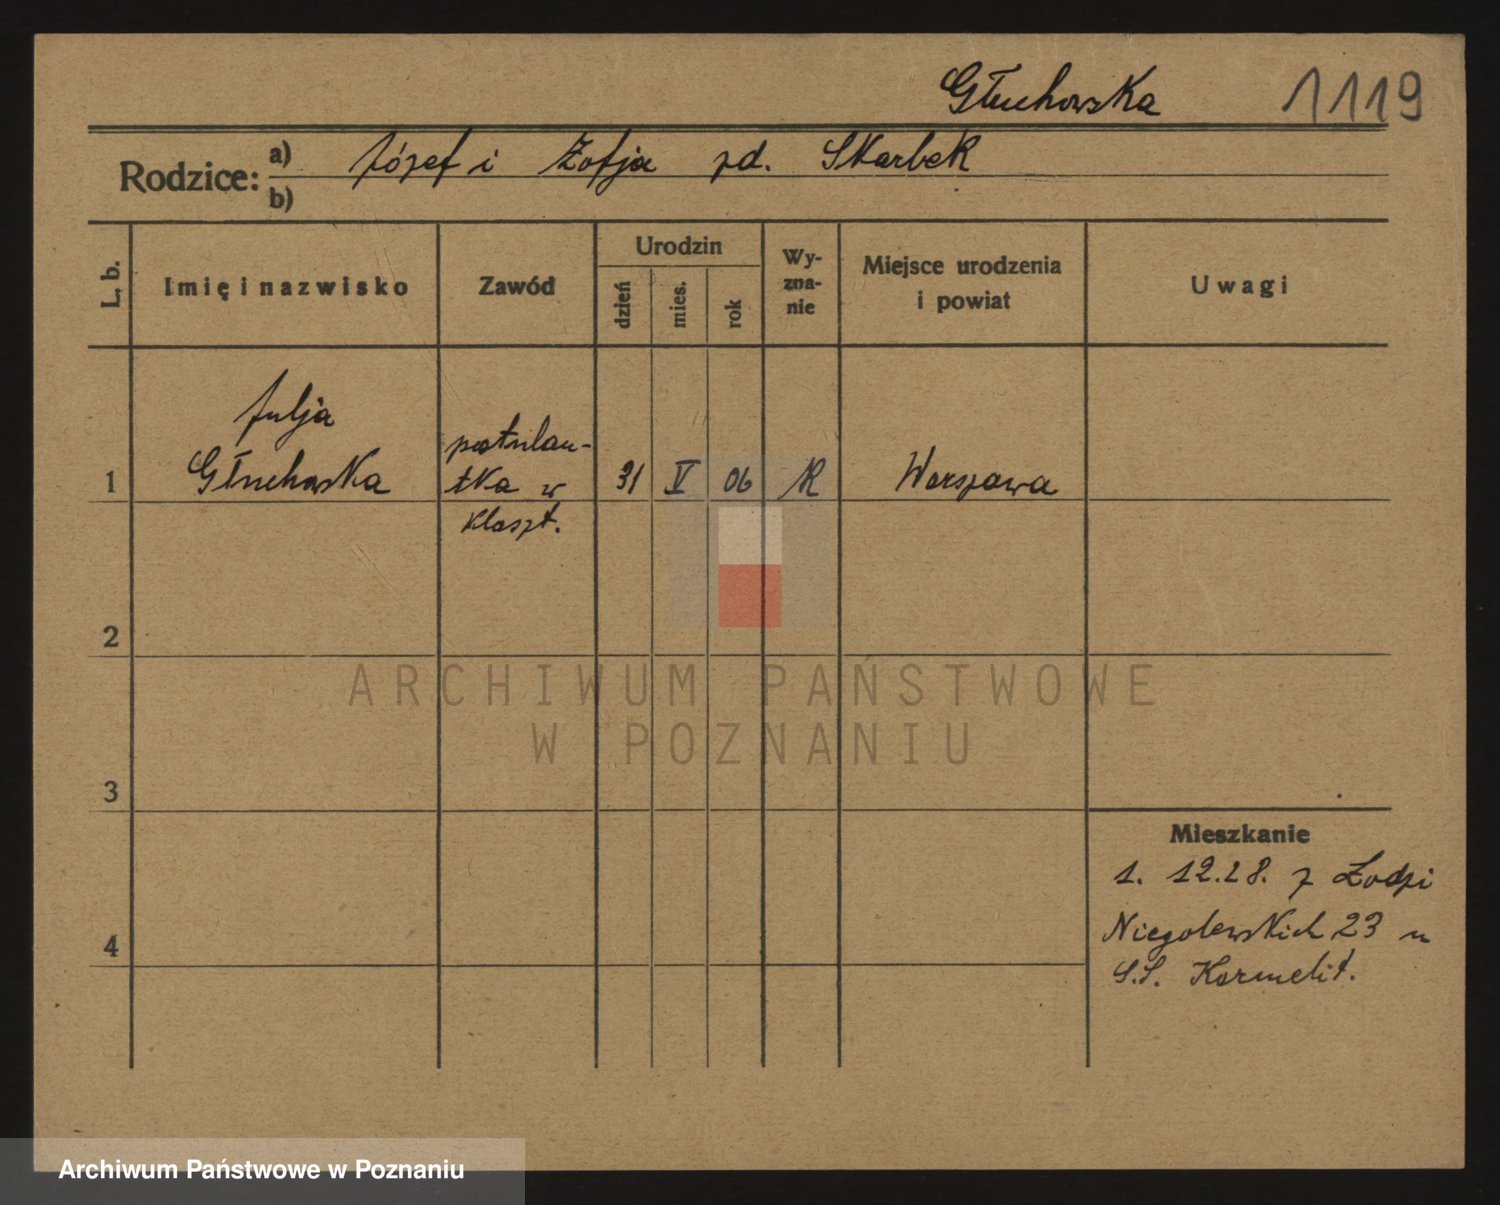 Głuchowska 1119
Rodzice: a) Józef i Zofja zd. Skarbek
b)
L. b.
Imię i nazwisko
Zawód
Urodzin
dzień
mies.
rok
Wy-
zna-
nie
Miejsce urodzenia
i powiat
Uwagi
Julja
Głuchowska
postulan-
tka w
klaszt.
1
31 V 06 R Warszawa
2
3
4
Mieszkanie
1. 12.28. z Łodzi
Niegolewskich 23 u
S.S. Karmelit.
ARCHIWUM PAŃSTWOWE
W POZNANIU
Archiwum Państwowe w Poznaniu